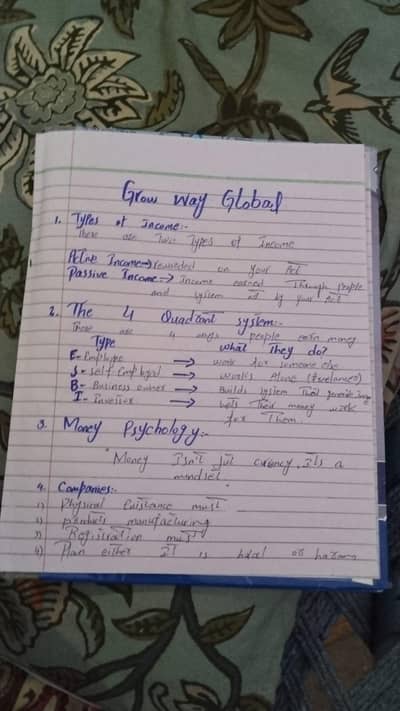 Grow Way Global
1. Types of Income:-
There are two Types of Income
Active Income → rewarded on your Act
Passive Income → Income earned Through people
and system not by your Act
2. The 4 Quadrant system:-
There are 4 ways people earn money
Type What They do?
E- Employee → work for someone else
S- self Employed → works Alone (freelancer)
B- Business owner → Builds system That generate
I- Investor → lets Their money work
for Them.
3. Money Psychology:-
"Money Isn't Just currency, Its a
mindset"
4. Companies:-
1) Physical Existance must
2) products manufacturing
3) Registration must
4) Plan either It is halal or haram